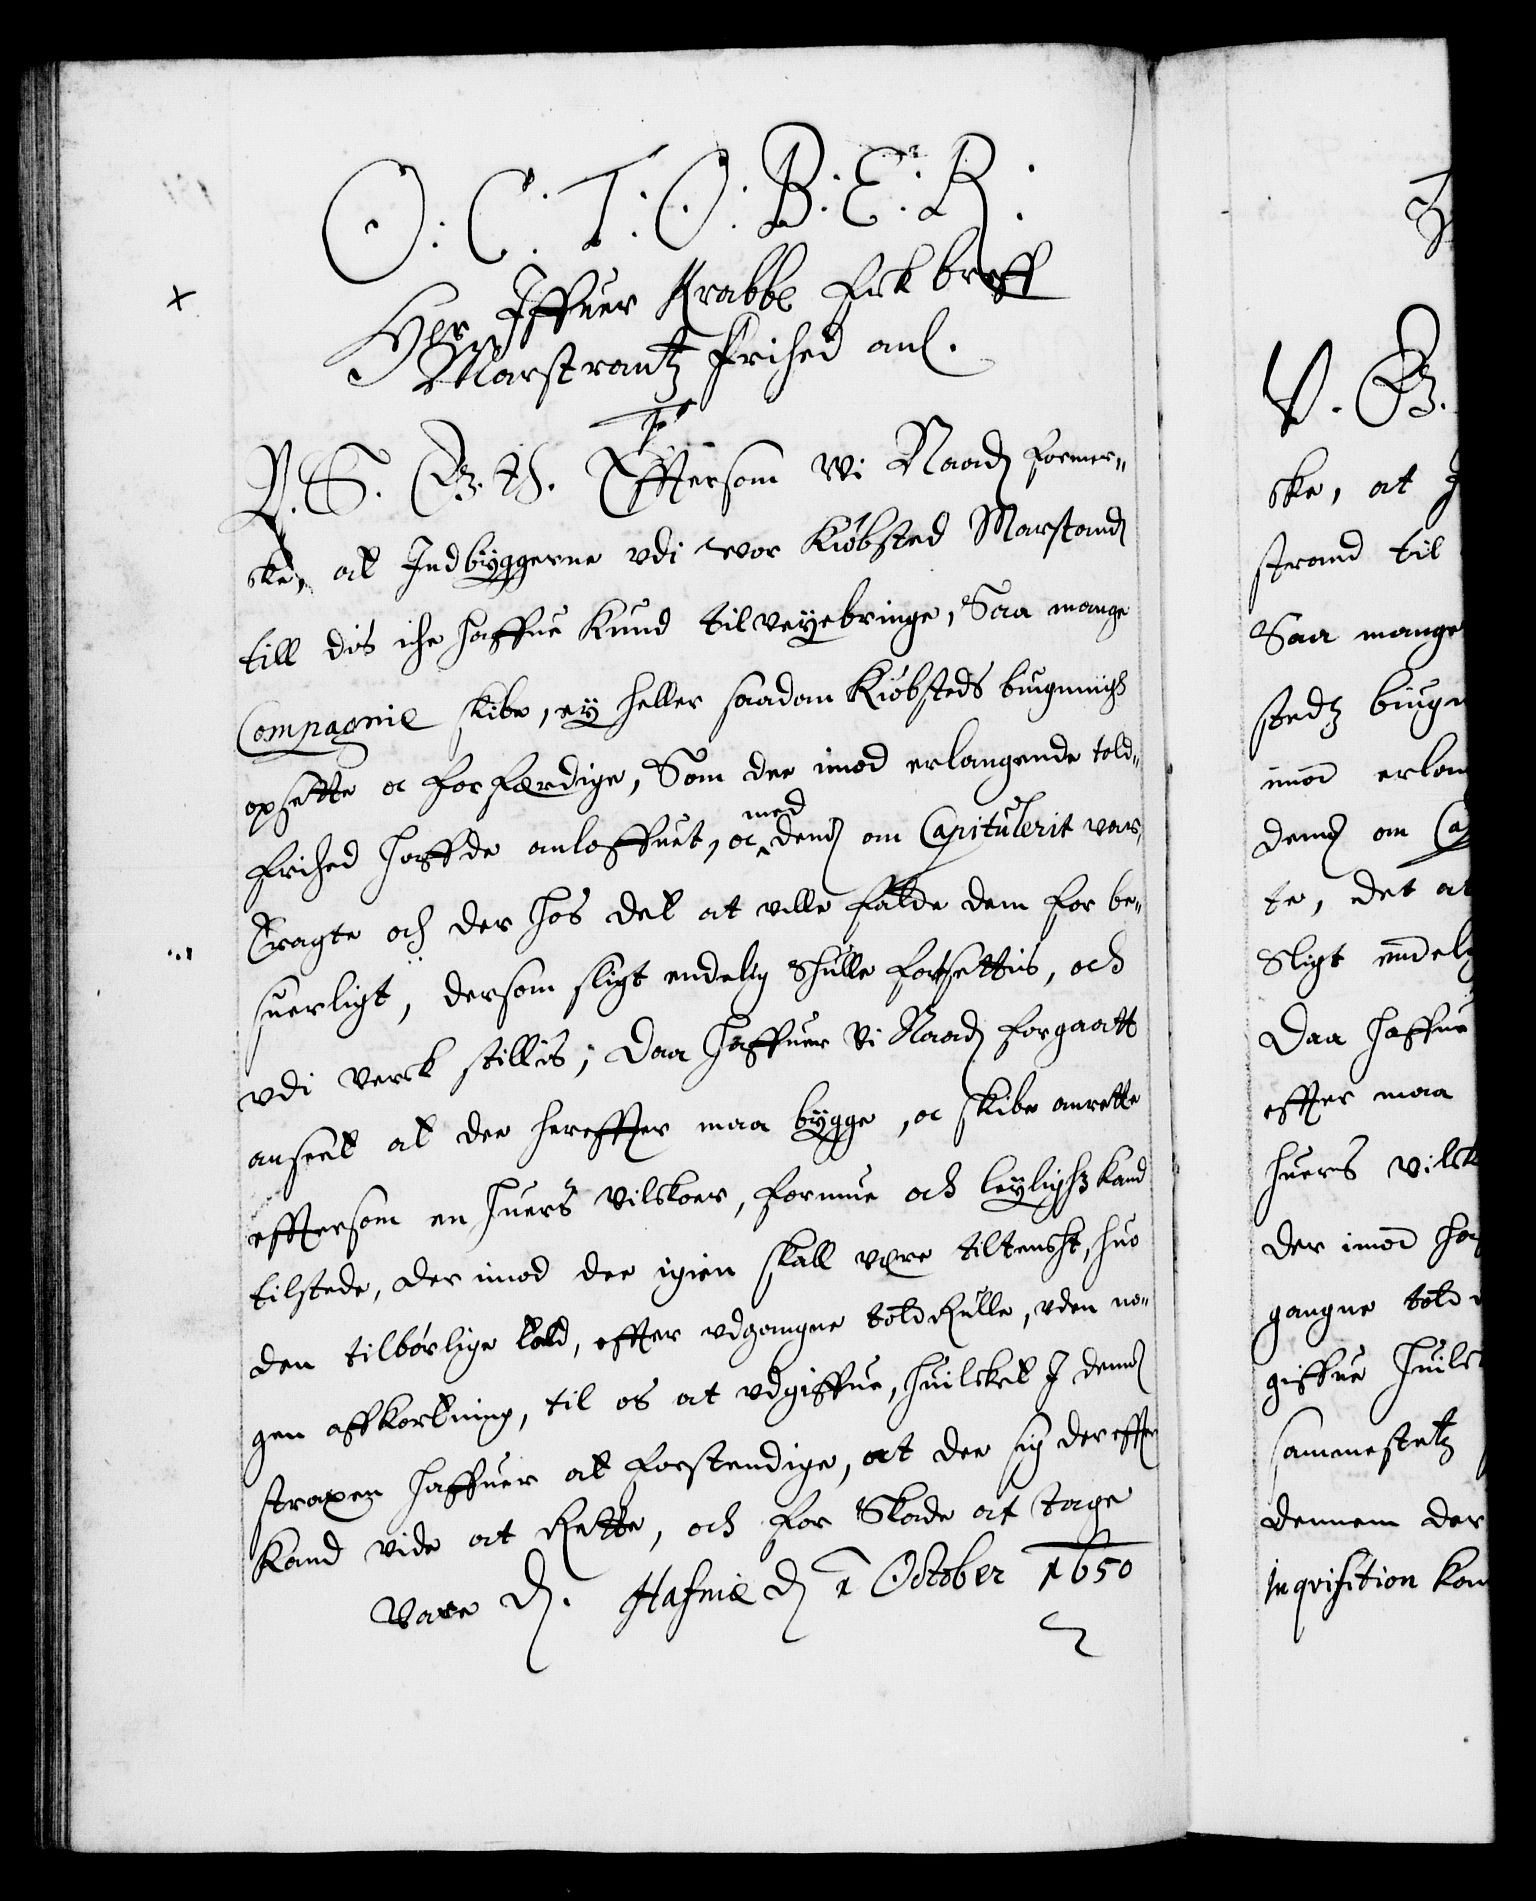 O: C: T: O: B: E: R:
Her Iffuer Krabbe fik breff
Marstrantz frihed anl.
V. S. G. th. Effterson Wi Naad. former-
ske, at Indbyggerne vdi vor Kiøbsted Marstand
till dis iche haffue Kund tilveyebringe, Saa mange
Compagnie skibe, ey heller saadan Kiøbsteds biugningh
opsette oc forfærdige, Som dee imod erlangende told-
frihed haffde anloffuet, oc med dem om Capitulerit var,
Tragte och der hos det at ville falde dem for be-
suerligt, dersom sligt endelig skulle fortsettis, och
vdi verck stillis; Daa Haffuer Vi Naad. forgaatt
anseet at dee hereffter maa bygge, oc skibe anrette
efftersom en huers vilckoer, formue och leylighz kand
tilstede, der imod dee igien skall være tiltenckt, huo
den tilbørlige told, effter vdgangne told Rulle, vden no-
gen affkortning, til os at vdgiffue, huilcket I dem
straxen haffuer at forstendige, at dee sig dereffter
kand vide at Rette, och for Skade at tage
Vare D. Hafniæ D. 1 October 1650
V. G.
ske, at
strand til
Saa mange
stedz biugn
imod erlan
dem om Ca
te, det at
Sligt endel
Daa haffue
effter maa
huers vilck
der imod
gangne told
giffue huilc
sammestetz
dennem der
inqvisition kan